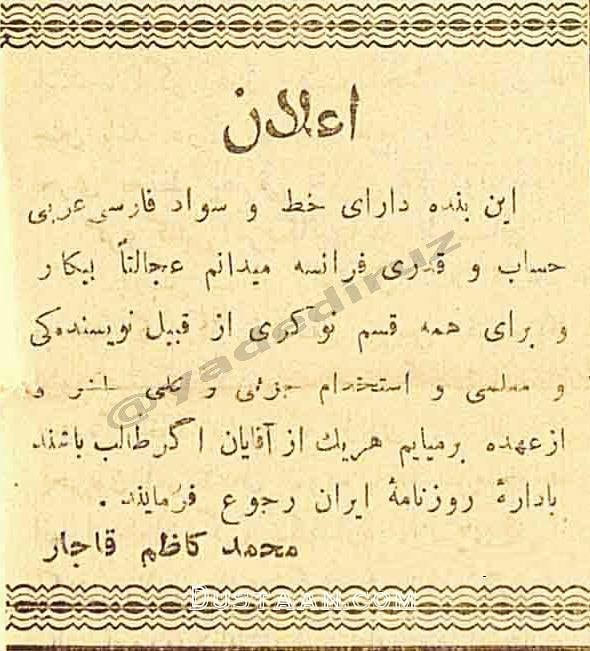 اعلان
این بنده دارای خط و سواد فارسی عربی
حساب و قدری فرانسه میدانم عجالتاً بیکار
و برای همه قسم نوکری از قبیل نویسنده‌کی
و معلمی و استخدام جزئی و کلی حاضر و
از عهده برمیایم هریك از آقایان اگر طالب باشند
بادارهٔ روزنامهٔ ایران رجوع فرمایند .
محمد کاظم قاجار
@yadediruz
DUSTAAN.COM